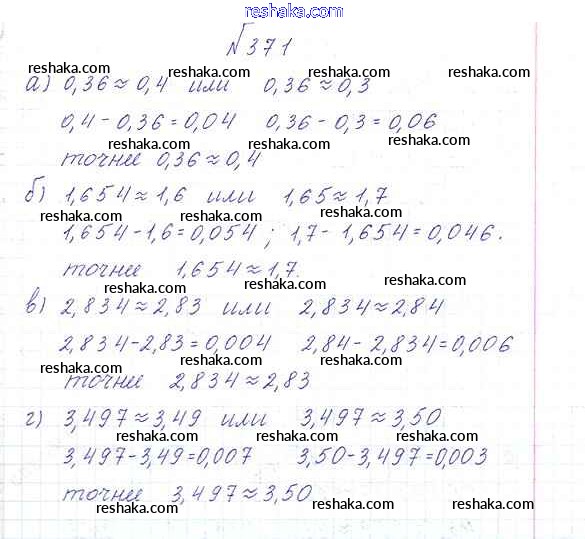 reshaka.com
№371
reshaka.com reshaka.com reshaka.com
а) 0,36≈0,4 или 0,36≈0,3
reshaka.com
0,4-0,36=0,04 0,36-0,3=0,06
reshaka.com reshaka.com
точнее 0,36≈0,4
reshaka.com
б) 1,654≈1,6 или 1,65≈1,7
reshaka.com reshaka.com reshaka.com
1,654-1,6=0,054; 1,7-1,654=0,046.
reshaka.com
точнее 1,654≈1,7.
reshaka.com reshaka.com
в) 2,834≈2,83 или 2,834≈2,84
reshaka.com reshaka.com reshaka.com
2,834-2,83=0,004 2,84-2,834=0,006
reshaka.com reshaka.com reshaka.com
точнее 2,834≈2,83
г) 3,497≈3,49 или 3,497≈3,50
reshaka.com reshaka.com
3,497-3,49=0,007 3,50-3,497=0,003
reshaka.com reshaka.com
точнее 3,497≈3,50
reshaka.com reshaka.com reshaka.com
reshaka.com